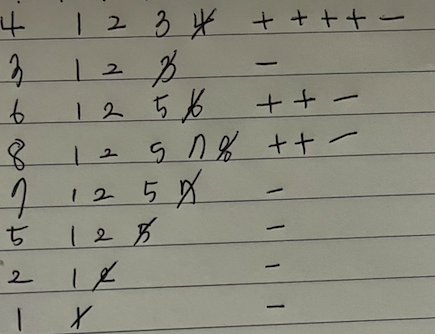 4 1 2 3 4 + + + + -
3 1 2 3 -
6 1 2 5 6 + + -
8 1 2 5 7 8 + + -
7 1 2 5 7 -
5 1 2 5 -
2 1 2 -
1 1 -